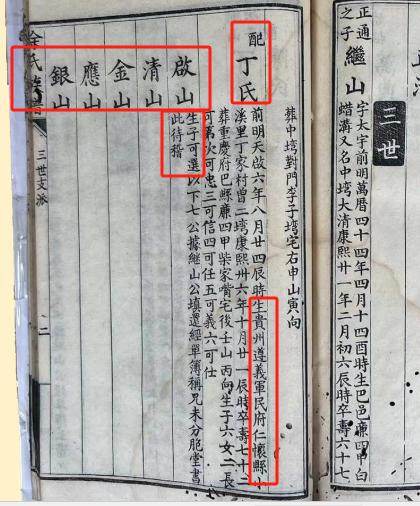 正通
之子
繼山
字太宇前明萬曆四十四年四月十四酉時生巴邑廉四甲白
蜡溝又名中塆大清康熙廿一年二月初六辰時卒壽六十七
三世
葬中塆對門李子塆宅右申山寅向
配丁氏
前明天啟六年八月廿四辰時生貴州遵義軍民府仁懷縣小
溪里丁家村曾二塆康熙卅六年十月廿一辰時卒壽七十二
葬重慶府巴縣廉四甲柴家嘴宅後壬山丙向生子六女二長
可萬次可忠三可信四可任五可義六可仕
啟山
生子可選以下七公據繼山公填還經單簿稱兄未分胞堂書
此待稽
清山
金山
應山
銀山
三世支派
二